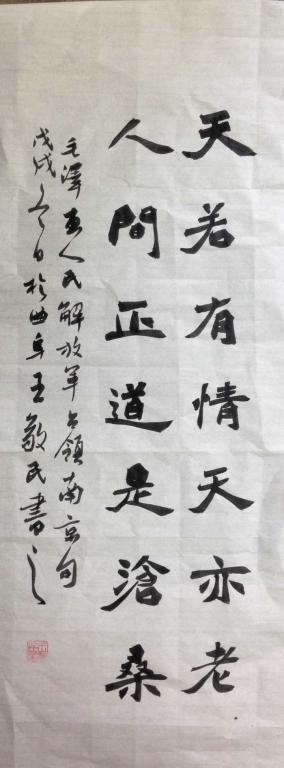 天若有情天亦老
人間正道是滄桑
毛澤東人民解放軍占領南京句
戊戌冬日於曲阜王敬民書之